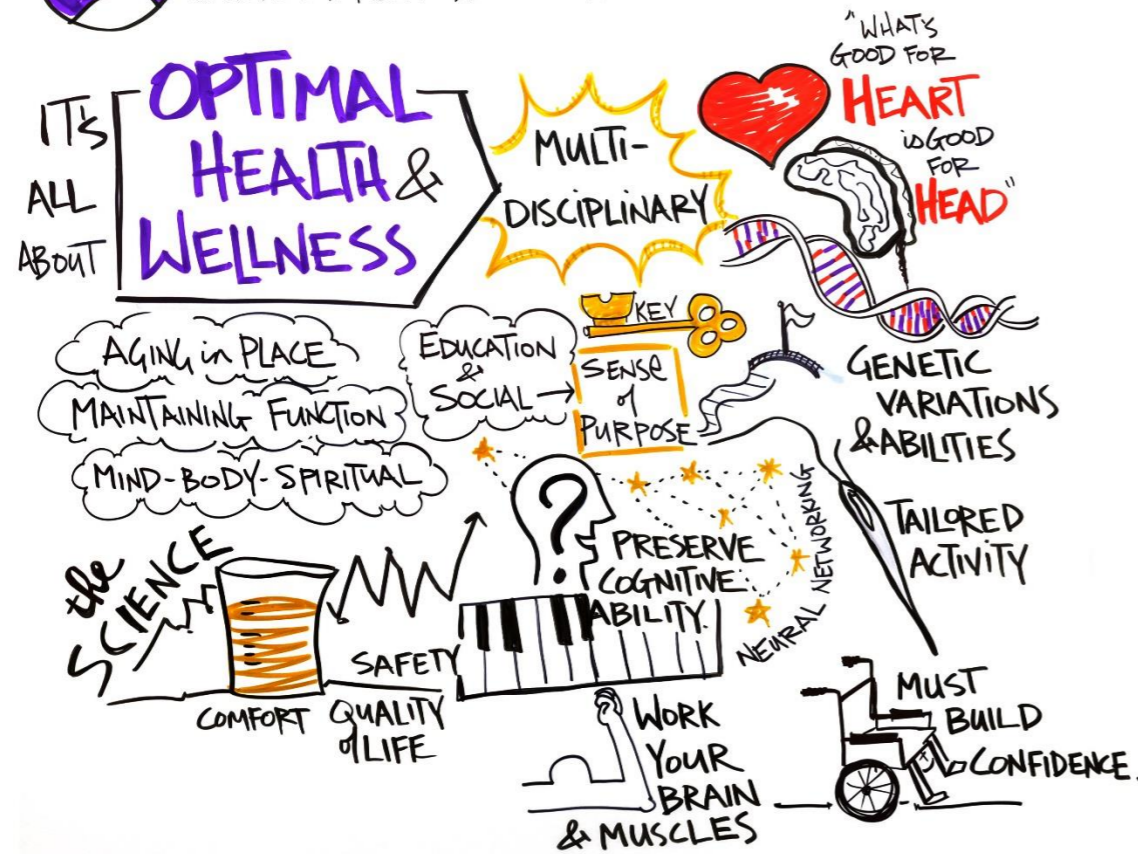 IT'S
ALL
ABOUT
OPTIMAL
HEALTH &
WELLNESS
MULTI-
DISCIPLINARY
"WHAT'S
GOOD FOR
HEART
is GOOD
FOR
HEAD"
AGING in PLACE
MAINTAINING FUNCTION
MIND-BODY-SPIRITUAL
EDUCATION
&
SOCIAL
KEY
SENSE
of
PURPOSE
GENETIC
VARIATIONS
& ABILITIES
TAILORED
ACTIVITY
PRESERVE
COGNITIVE
ABILITY.
NEURAL NETWORKING
the
SCIENCE
SAFETY
COMFORT
QUALITY
of LIFE
WORK
YOUR
BRAIN
& MUSCLES
MUST
BUILD
CONFIDENCE.